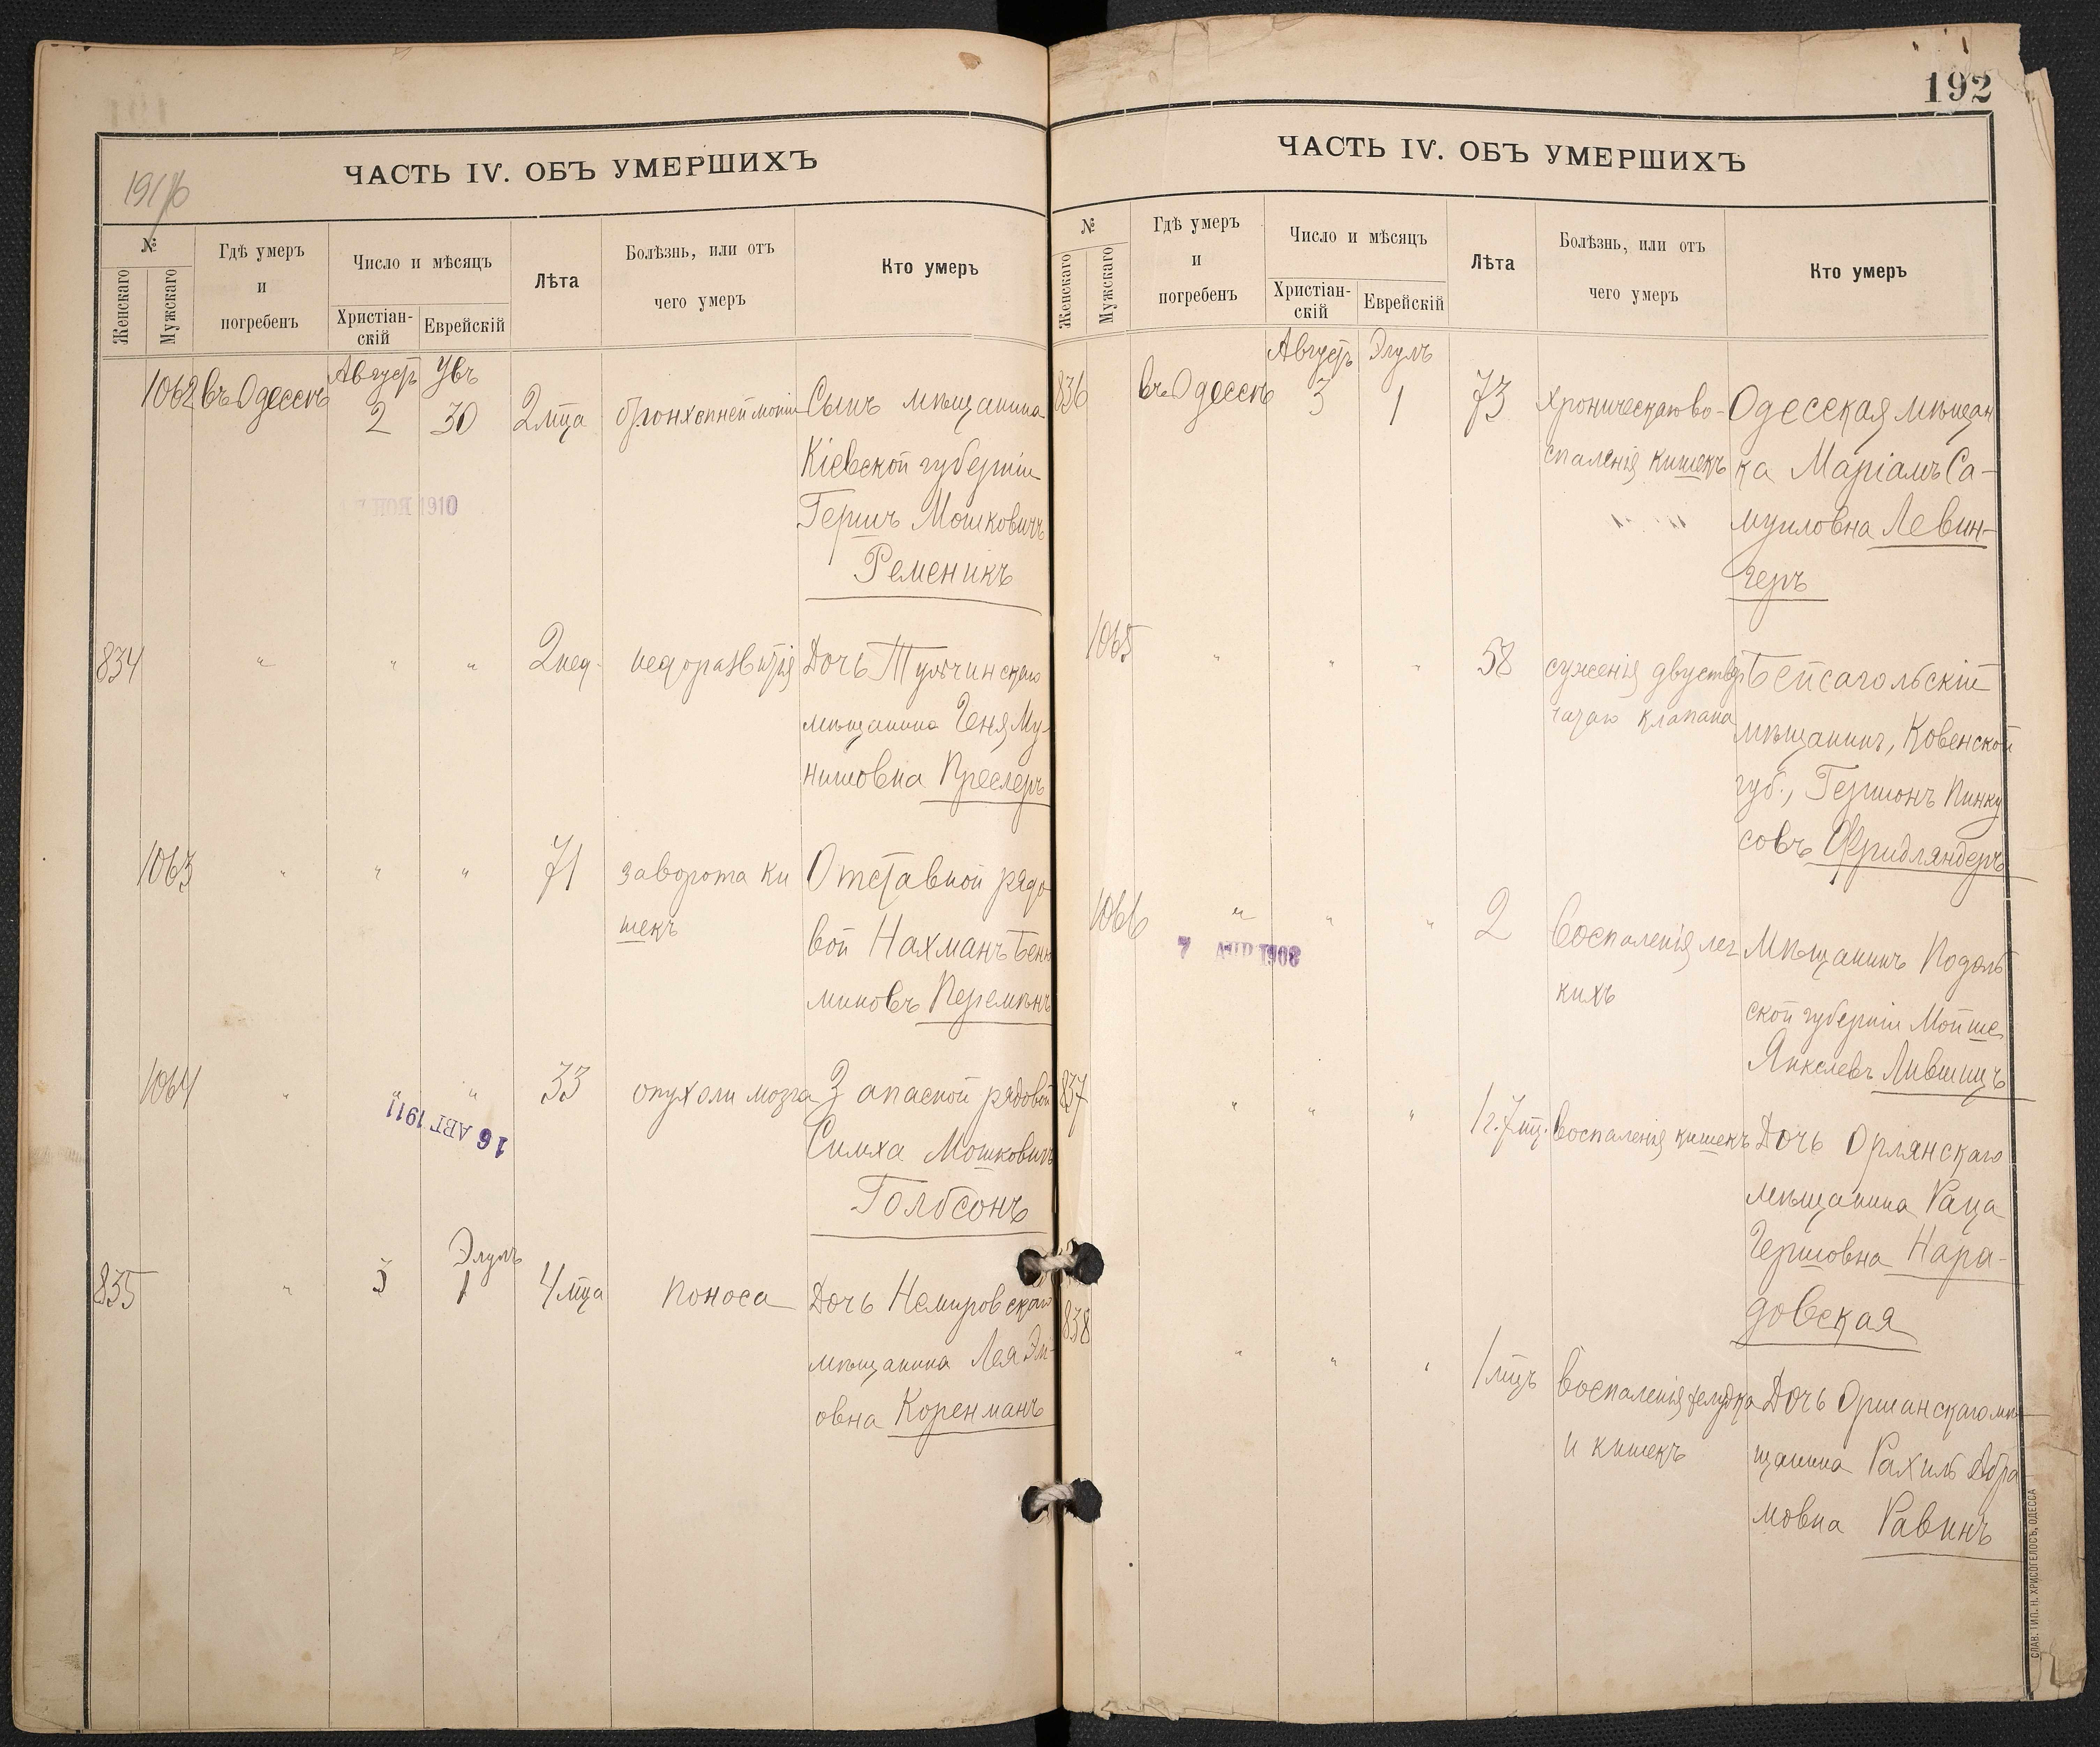 ЧАСТЬ IV. ОБЪ УМЕРШИХЪ
№
Женскаго
Мужскаго
Гдѣ умеръ
и
погребенъ
Число и мѣсяцъ
Христіан-
скій
Еврейскій
Лѣта
Болѣзнь, или отъ
чего умеръ
Кто умеръ
1062 въ Одессѣ Август 2 30 2 мца бронхопнеймоніи Сынъ мѣщанина
Кіевской губерніи
Гершъ Мошковичъ
Ременикъ
834 " " " 2 нед. недоразвитія Дочь Тульчинскаго
мѣщанина Геня Му-
нишовна Преслеръ
1063 " " " 71 заворота ки Отставной рядо
шекъ
вой Нахманъ Бенья
миновъ Перемѣнъ
1064 " " " 33 опухоли мозга Запасной рядовой
16 АВГ 1911
Симха Мошковичъ
Голбсонъ
Элулъ
835 " 3 1 4 мца поноса Дочь Немировскаго
мѣщанина Лея
овна Коренманъ
192
ЧАСТЬ IV. ОБЪ УМЕРШИХЪ
№
Женскаго
Мужскаго
Гдѣ умеръ
и
погребенъ
Число и мѣсяцъ
Христіан-
скій
Еврейскій
Лѣта
Болѣзнь, или отъ
чего умеръ
Кто умеръ
Август Элулъ
836 въ Одессѣ 3 1 73 хроническаго во- Одесская мѣщан
спаленія кишекъ ка Маріамъ Са-
муиловна Левин-
геръ
1065 " " " 58 суженія двуствор Бейсагольскій
чатаго клапана мѣщанинъ, Ковенской
губ., Гершонъ Пинку
совъ Фридляндеръ
1066 " " " 2 воспаленія лег Мѣщанинъ Подоль
7 АПР 1908
кихъ
ской губерніи Мойше
Янкелевъ Лившицъ
837 " " " 1 г. 7 мц. воспаленія кишекъ Дочь Орлянскаго
мѣщанина Раца
Гершовна Нара-
довская
838 " " " 1 мцъ воспаленія желудка Дочь Оршанскаго мѣ
и кишекъ щанина Рахиль Абра
мовна Равинъ
СЛАВ. ТИП. Н. ХРИСОГЕЛОСЪ, ОДЕССА